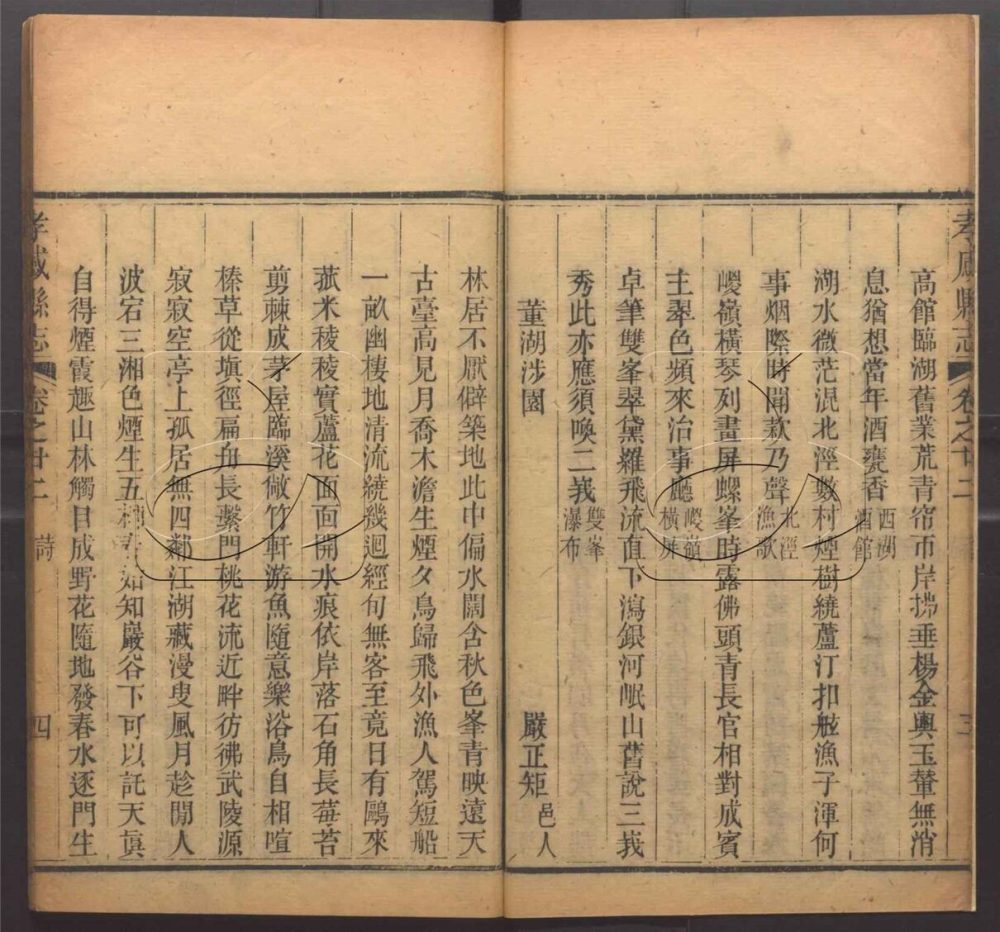 孝感縣志 卷之廿二 三
高館臨湖舊業荒青帘帀岸拂垂楊金輿玉輦無消
息猶想當年酒甕香 西湖酒館
湖水微茫混北涇數村煙樹繞蘆汀扣舷漁子渾何
事烟際時聞欵乃聲 北涇漁歌
㟍嶺橫琴列畫屏螺峯時露佛頭青長官相對成賓
主翠色頻來治事廳 㟍嶺橫屏
卓筆雙峯翠黛羅飛流直下瀉銀河岷山舊說三峩
秀此亦應須喚二峩 雙峯瀑布
董湖涉園 嚴正矩 邑人
林居不厭僻築地此中偏水闊含秋色峯青映遠天
古臺高見月喬木澹生煙夕鳥歸飛外漁人駕短船
一畝幽樓地清流繞幾迴經旬無客至竟日有鷗來
菰米稜稜實蘆花面面開水痕依岸落石角長莓苔
剪棘成茅屋臨溪敞竹軒游魚隨意樂浴鳥自相喧
榛草從塡徑扁舟長繫門桃花流近畔彷彿武陵源
寂寂空亭上孤居無四鄰江湖藏漫叟風月趁閒人
波宕三湘色煙生五 如知巖谷下可以託天眞
自得煙霞趣山林觸目成野花隨地發春水逐門生
孝感縣志 卷之廿二 詩 四